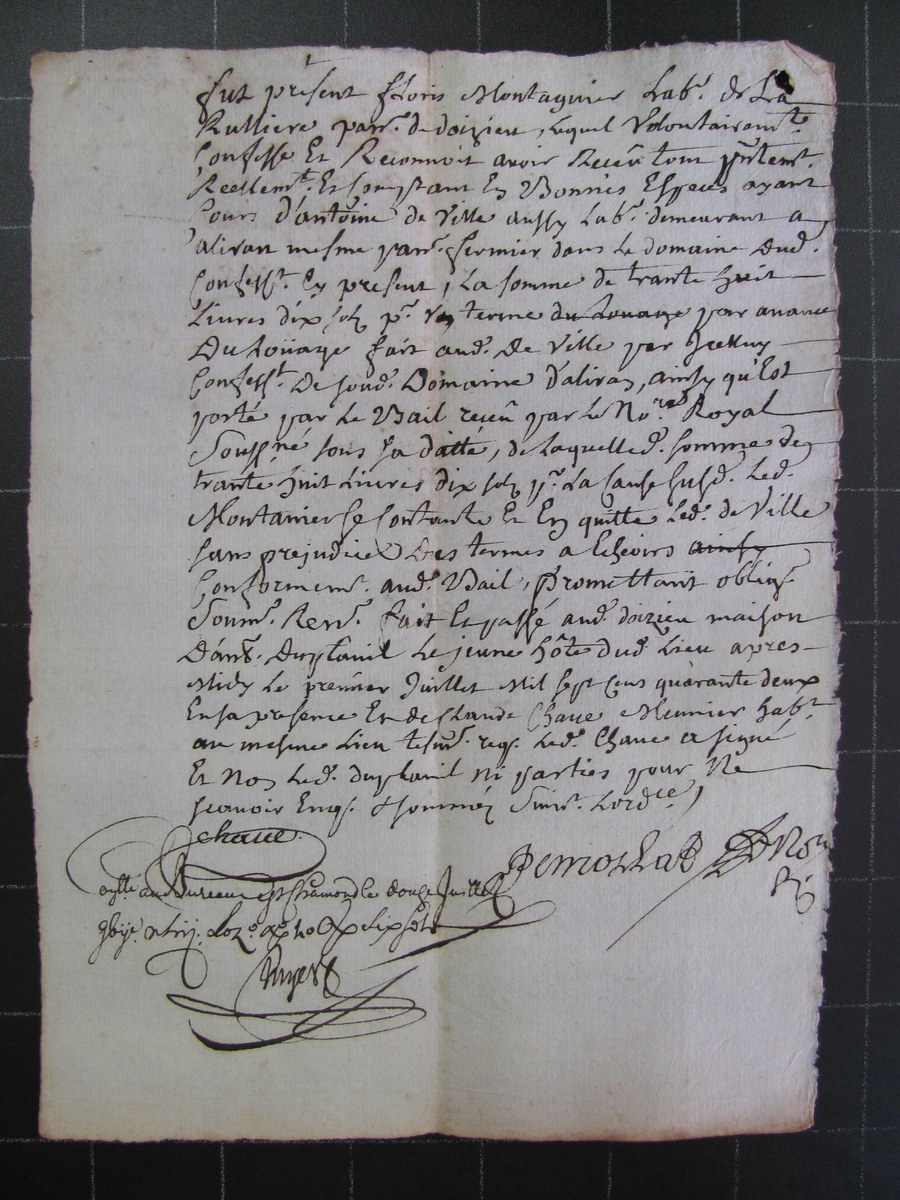 fut présent floris Montagnier Lab.r de La
Rulliere parr.e de doizieu, lequel Volontairem.t
Confesse Et Reconnoit avoir Receu tout p.ntem.t
Reellem.t Et Comptant En Bonnes Especes ayant
Cours d'antoine de Ville aussy Lab.r demeurant a
aliran mesme parr.e fermier dans le domaine dud.
Confess.t Cy present, La somme de trante huit
Livres dix sols p.r un terme du Louage par avance
Du Loüage fait aud. De Ville par Icelluy
Confess.t De soud. Domaine d'aliran, ainsy qu'Est
porté par Le Bail receu par le No.re Royal
Soussig.ne sous sa datte, de Laquelle d. somme de
trante huit Livres dix sols p.r La Cause susd. Led.
Montanier se Contante Et En quitte Led. de Ville
sans prejudice Des termes a Echeoirs ainsy
Conformem.t aud. Bail, Promettant oblig.t
Soum.t Ren.t fait Et passé aud. doizieu maison
D'ant.e Duplanil Le jeune hôte dud. Lieu apres
Midy Le premier Juillet Mil sept Cens quarante deux
En sa presence Et de Claude Chave Meunier hab.t
au mesme Lieu tesm. req. Led. Chave a signé
Et Non Led. duplanil ni parties pour Ne
scavoir Enq. & sommés Suiv.t Lord.ce
chave
au Bureau de St Chamond le douze Juillet
dix sols